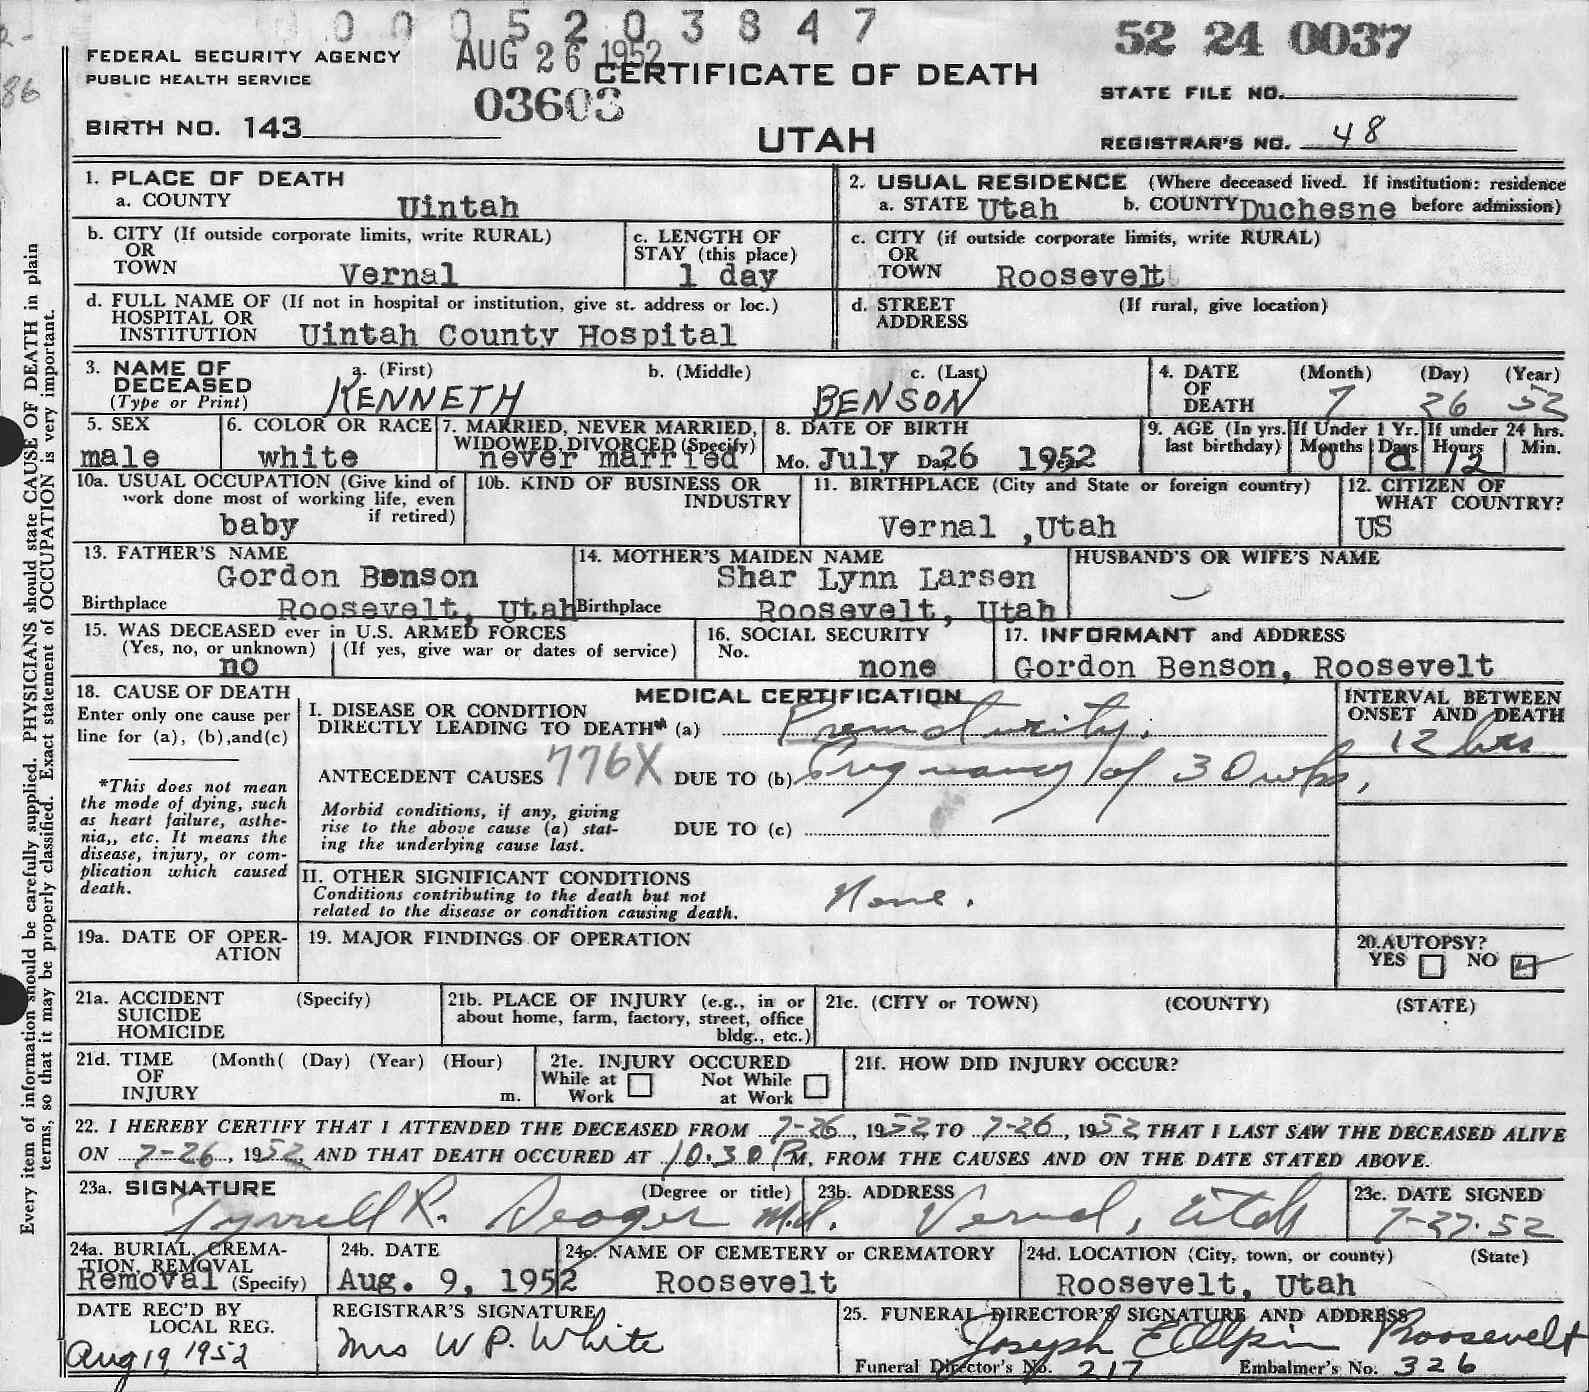 0 0 0 5 2 0 3 8 4 7
52 24 0037
FEDERAL SECURITY AGENCY
PUBLIC HEALTH SERVICE
AUG 26 1952
CERTIFICATE OF DEATH
STATE FILE NO.
03603
BIRTH NO. 143
UTAH
REGISTRAR'S NO. 48
86
Every item of information should be carefully supplied. PHYSICIANS should state CAUSE OF DEATH in plain
terms, so that it may be properly classified. Exact statement of OCCUPATION is very important.
1. PLACE OF DEATH
a. COUNTY Uintah
2. USUAL RESIDENCE (Where deceased lived. If institution: residence
a. STATE Utah b. COUNTY Duchesne before admission)
b. CITY (If outside corporate limits, write RURAL)
OR
TOWN Vernal
c. LENGTH OF
STAY (this place)
1 day
c. CITY (if outside corporate limits, write RURAL)
OR
TOWN Roosevelt
d. FULL NAME OF (If not in hospital or institution, give st. address or loc.)
HOSPITAL OR
INSTITUTION Uintah County Hospital
d. STREET (If rural, give location)
ADDRESS
3. NAME OF DECEASED (Type or Print)
a. (First) b. (Middle) c. (Last)
KENNETH BENSON
4. DATE OF DEATH (Month) (Day) (Year)
7 26 52
5. SEX
male
6. COLOR OR RACE
white
7. MARRIED, NEVER MARRIED,
WIDOWED, DIVORCED (Specify)
never married
8. DATE OF BIRTH
Mo. July Da. 26 Year 1952
9. AGE (In yrs. last birthday)
If Under 1 Yr. Months 0 Days 0
If under 24 hrs. Hours 12 Min.
10a. USUAL OCCUPATION (Give kind of
work done most of working life, even
if retired)
baby
10b. KIND OF BUSINESS OR
INDUSTRY
11. BIRTHPLACE (City and State or foreign country)
Vernal ,Utah
12. CITIZEN OF
WHAT COUNTRY?
US
13. FATHER'S NAME
Gordon Benson
Birthplace Roosevelt, Utah
14. MOTHER'S MAIDEN NAME
Shar Lynn Larsen
Birthplace Roosevelt, Utah
HUSBAND'S OR WIFE'S NAME
15. WAS DECEASED ever in U.S. ARMED FORCES
(Yes, no, or unknown) (If yes, give war or dates of service)
no
16. SOCIAL SECURITY
No.
none
17. INFORMANT and ADDRESS
Gordon Benson, Roosevelt
18. CAUSE OF DEATH
Enter only one cause per
line for (a), (b),and(c)
*This does not mean
the mode of dying, such
as heart failure, asthe-
nia,, etc. It means the
disease, injury, or com-
plication which caused
death.
MEDICAL CERTIFICATION
I. DISEASE OR CONDITION
DIRECTLY LEADING TO DEATH* (a) Prematurity.
ANTECEDENT CAUSES 776X DUE TO (b) Pregnancy of 30 wks,
Morbid conditions, if any, giving
rise to the above cause (a) stat-
ing the underlying cause last.
DUE TO (c)
INTERVAL BETWEEN
ONSET AND DEATH
12 hrs
II. OTHER SIGNIFICANT CONDITIONS
Conditions contributing to the death but not
related to the disease or condition causing death.
None.
19a. DATE OF OPER-
ATION
19. MAJOR FINDINGS OF OPERATION
20.AUTOPSY?
YES NO
21a. ACCIDENT (Specify)
SUICIDE
HOMICIDE
21b. PLACE OF INJURY (e.g., in or
about home, farm, factory, street, office
bldg., etc.)
21c. (CITY or TOWN) (COUNTY) (STATE)
21d. TIME (Month( (Day) (Year) (Hour)
OF
INJURY m.
21e. INJURY OCCURED
While at Work Not While at Work
21f. HOW DID INJURY OCCUR?
22. I HEREBY CERTIFY THAT I ATTENDED THE DECEASED FROM 7-26, 1952, TO 7-26, 1952, THAT I LAST SAW THE DECEASED ALIVE
ON 7-26, 1952, AND THAT DEATH OCCURED AT 10:30 PM, FROM THE CAUSES AND ON THE DATE STATED ABOVE.
23a. SIGNATURE (Degree or title)
Tyrrell R. Seager M.d.
23b. ADDRESS
Vernal, Utah
23c. DATE SIGNED
7-27-52
24a. BURIAL, CREMA-
TION, REMOVAL
Removal (Specify)
24b. DATE
Aug. 9, 1952
24c. NAME OF CEMETERY or CREMATORY
Roosevelt
24d. LOCATION (City, town, or county) (State)
Roosevelt, Utah
DATE REC'D BY
LOCAL REG.
Aug 19, 1952
REGISTRAR'S SIGNATURE
Mrs W P. White
25. FUNERAL DIRECTOR'S SIGNATURE AND ADDRESS
Joseph E Olpin Roosevelt
Funeral Director's No. 217 Embalmer's No. 326